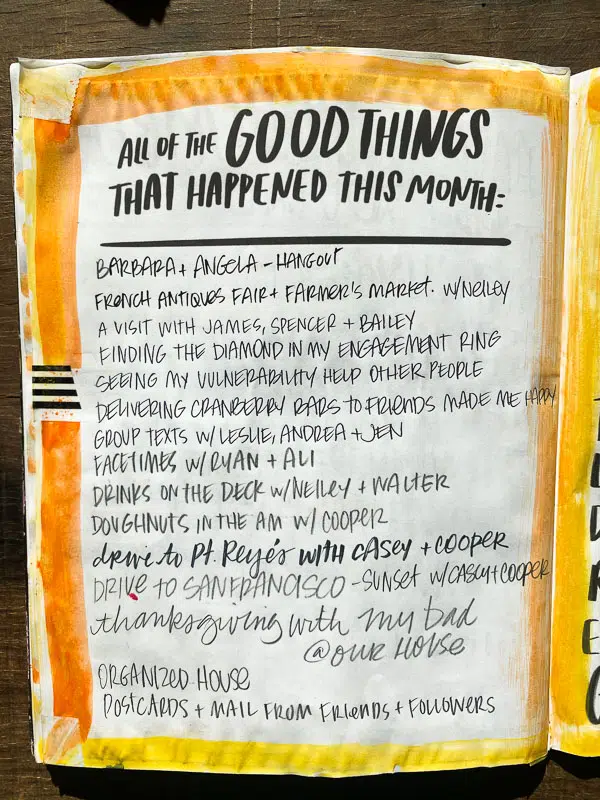 ALL OF THE GOOD THINGS
THAT HAPPENED THIS MONTH:
BARBARA + ANGELA - HANGOUT
FRENCH ANTIQUES FAIR + FARMER'S MARKET. W/NEILEY
A VISIT WITH JAMES, SPENCER + BAILEY
FINDING THE DIAMOND IN MY ENGAGEMENT RING
SEEING MY VULNERABILITY HELP OTHER PEOPLE
DELIVERING CRANBERRY BARS TO FRIENDS MADE ME HAPPY
GROUP TEXTS W/ LESLIE, ANDREA + JEN
FACETIMES W/ RYAN + ALI
DRINKS ON THE DECK W/NEILEY + WALTER
DOUGHNUTS IN THE AM W/ COOPER
drive to Pt. Reyes WITH CASEY + COOPER
DRIVE TO SAN FRANCISCO - SUNSET W/CASEY+COOPER
thanksgiving with my dad
@ OUR HOUSE
ORGANIZED HOUSE
POSTCARDS + MAIL FROM FRIENDS + FOLLOWERS